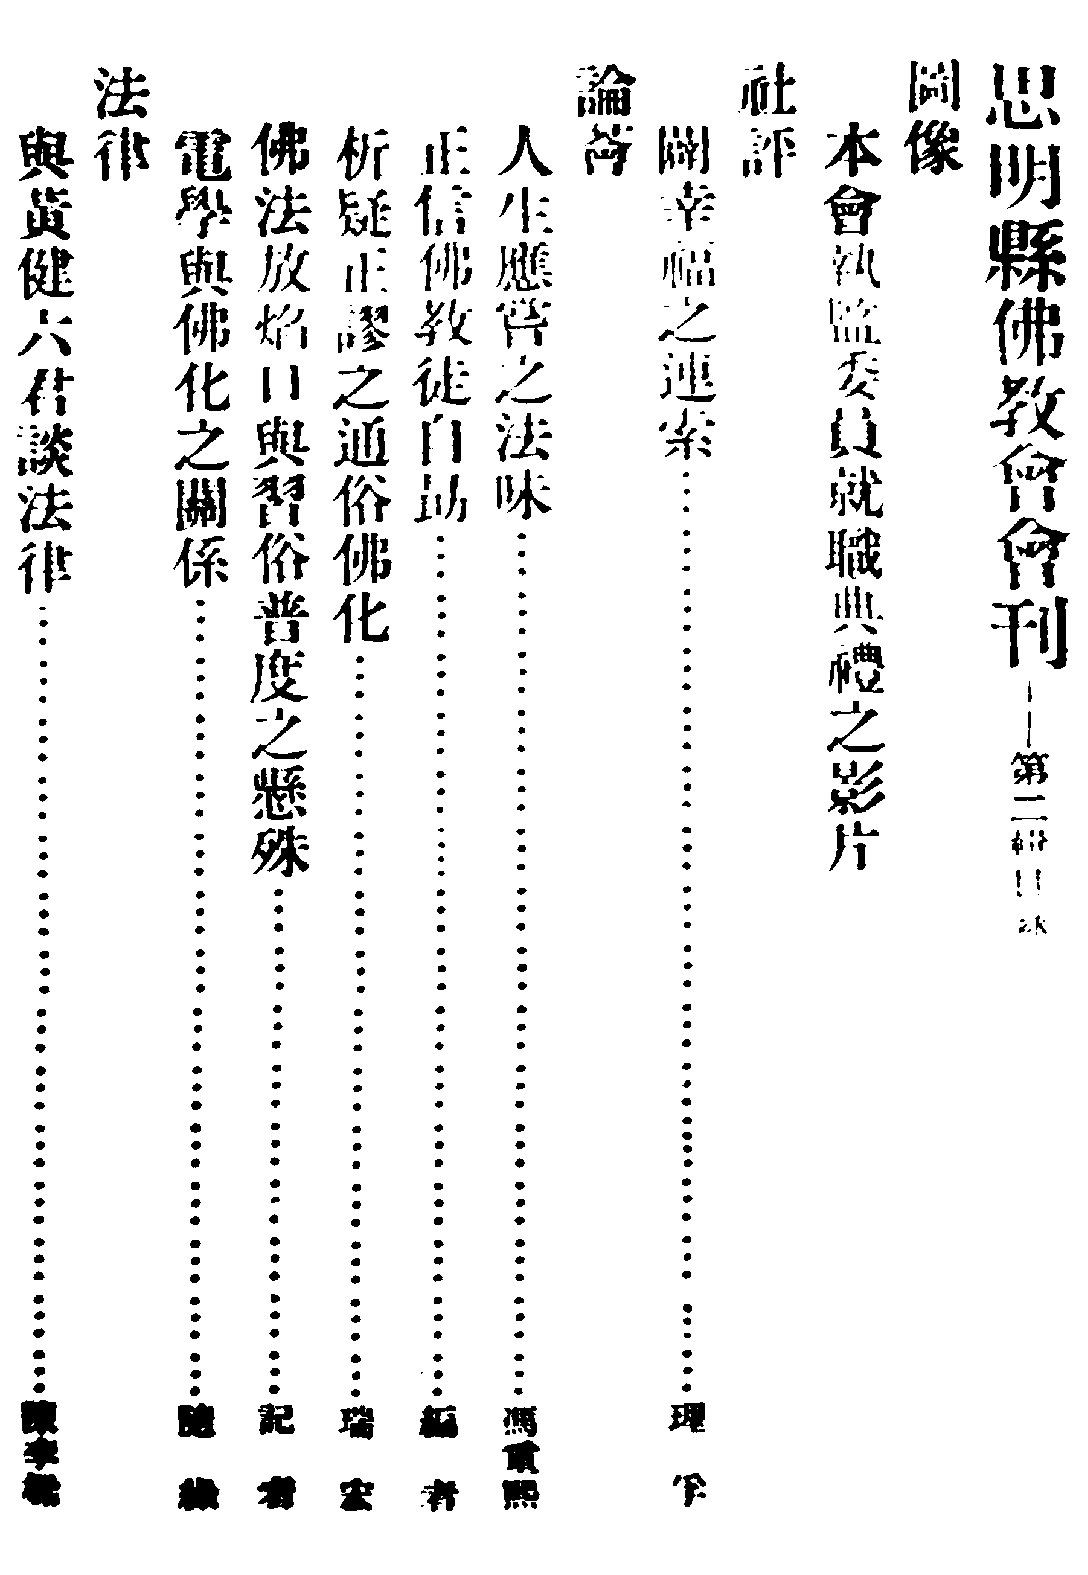 思明縣佛教會會刊——第二輯目錄
圖像
本會執監委員就職典禮之影片
社評
關幸福之連索……理
論著
人生應嘗之法味……馮重熙
正信佛教徒自助……編者
析疑正謬之通俗佛化……瑞宏
佛法放焰口與習俗普度之懸殊……記者
電學與佛化之關係……隨緣
法律
與黃健六君談法律……陳李樑